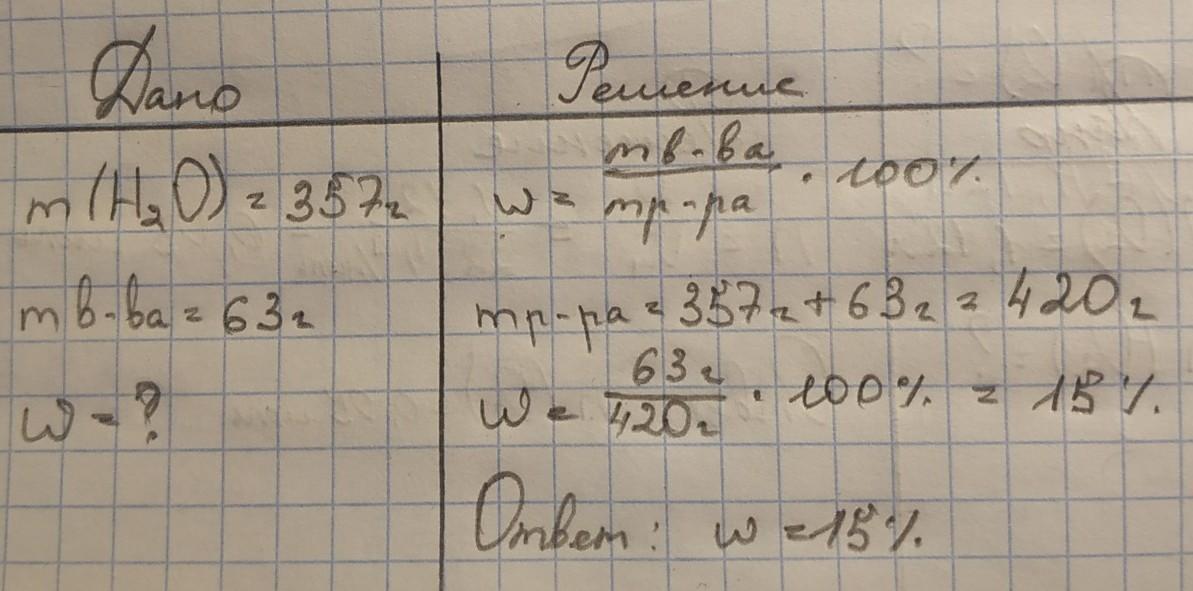 Дано
m(H₂O) = 357г
mв-ва = 63г
w = ?
Решение
w = mв-ва / mр-ра · 100%
mр-ра = 357г + 63г = 420г
w = 63г / 420г · 100% = 15%
Ответ: w = 15%